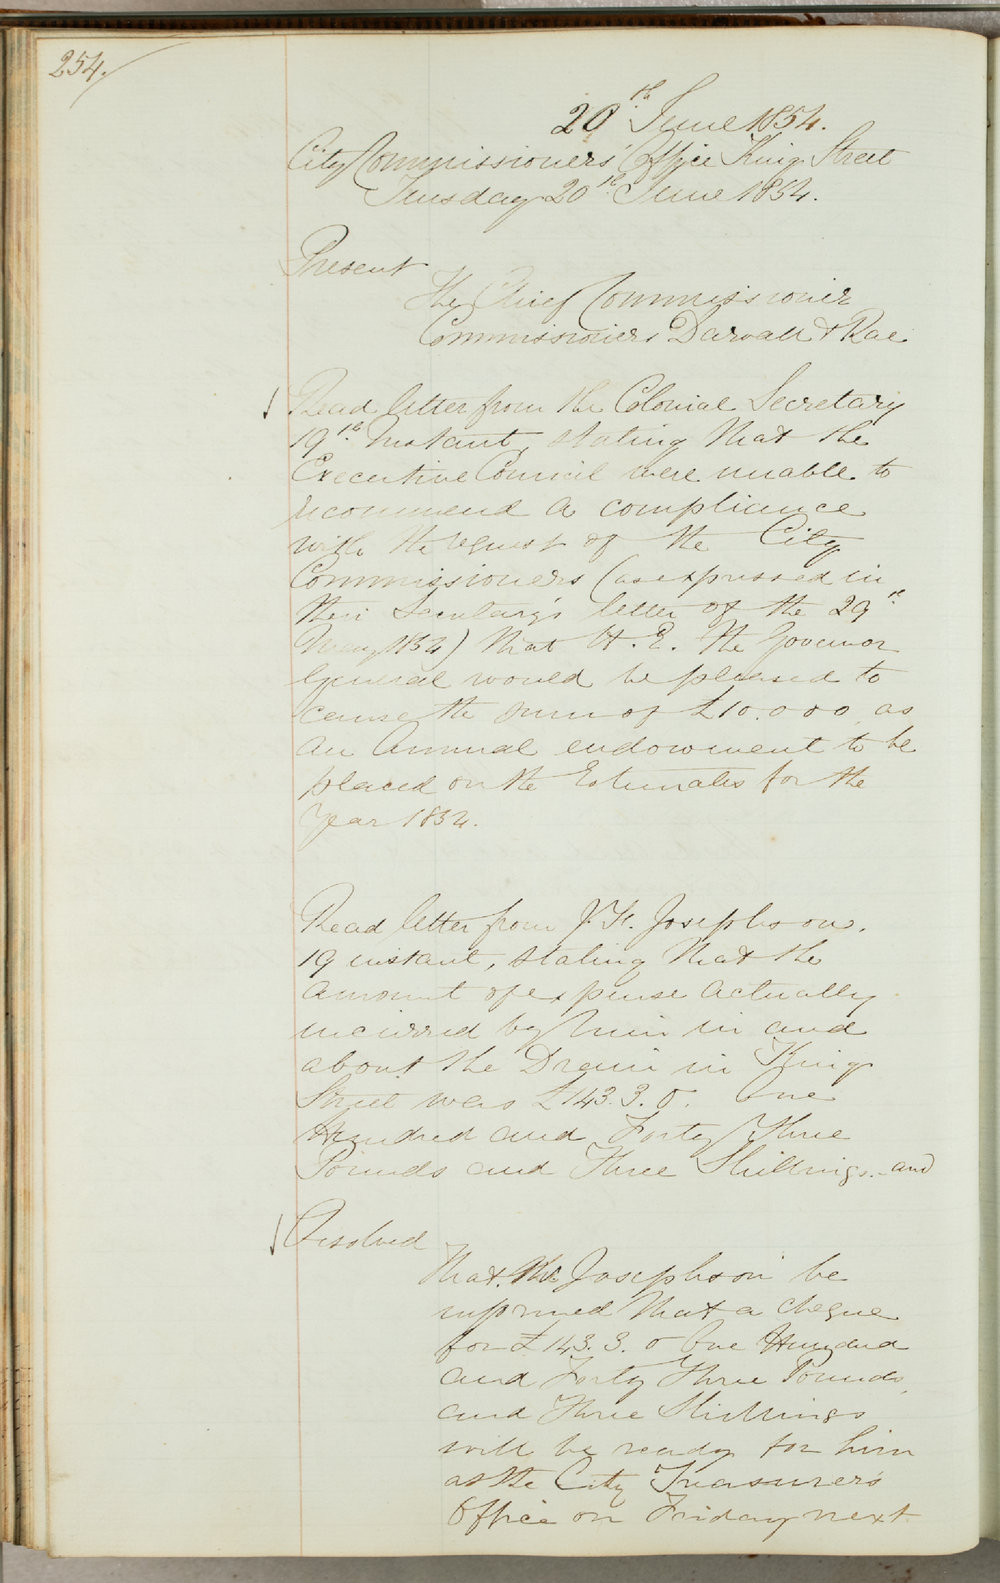 254.
20th June 1854.
City Commissioners' Office King Street
Tuesday 20th June 1854.
Present
The Chief Commissioner
Commissioners Darvall & Rae
Read letter from the Colonial Secretary
19th Instant, stating that the
Executive Council were unable to
recommend a compliance
with the request of the City
Commissioners (as expressed in
their Secretary's letter of the 29th
May 1854) that H. E. the Governor
General would be pleased to
cause the sum of £10.000 as
an Annual endowment to be
placed on the Estimates for the
Year 1854.
Read letter from J. F. Josephson.
19 instant, stating that the
amount of expense actually
incurred by him in and
about the Drain in King
Street was £143.3.0. One
Hundred and Forty Three
Pounds and Three Shillings. and
Resolved
That Mr Josephson be
informed that a cheque
for £143.3.0 One Hundred
and Forty Three Pounds
and Three Shillings
will be ready for him
at the City Treasurer's
Office on Friday next